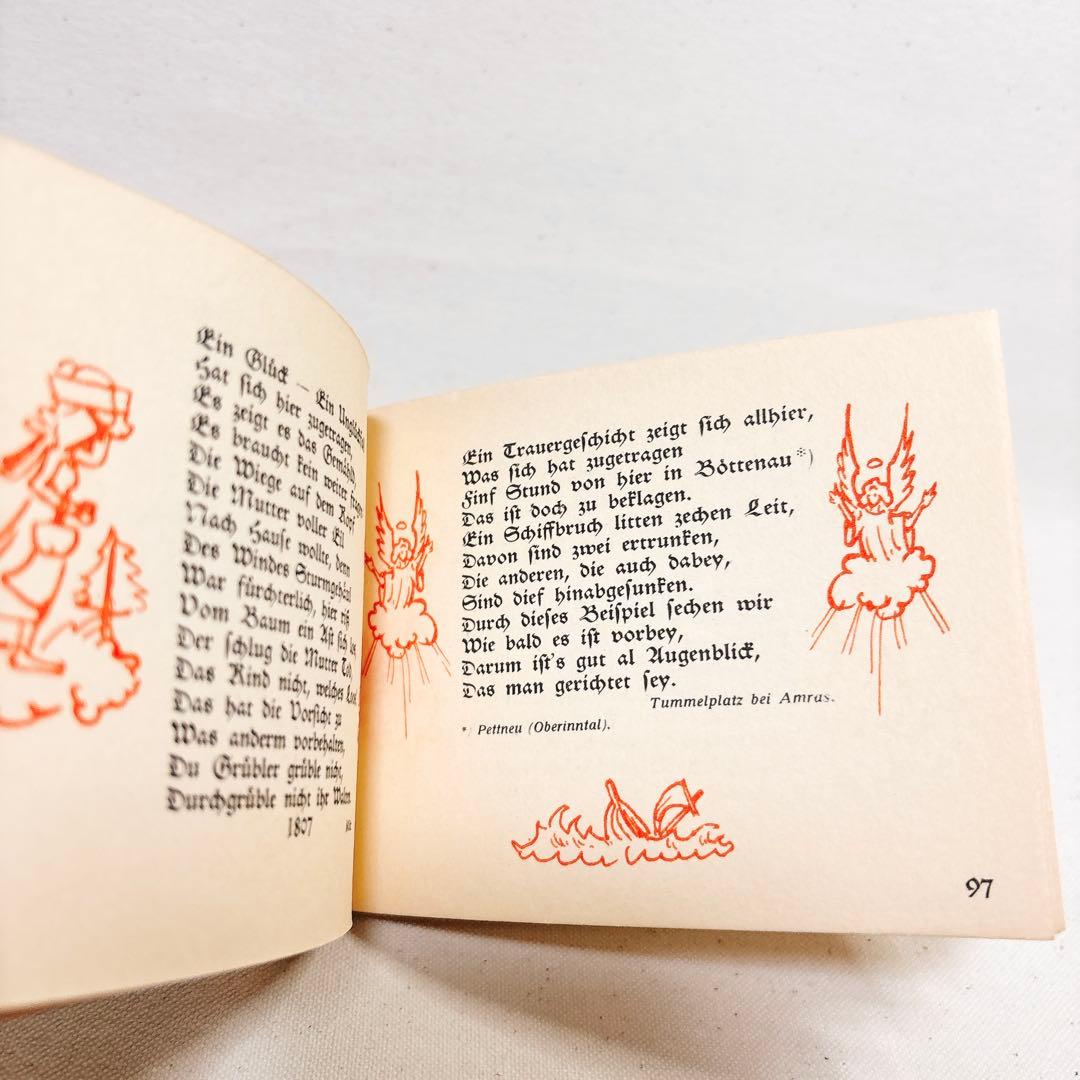 Ein Glück — Ein Unglück
Hat sich hier zugetragen,
Es zeigt es das Gemähld,
Es braucht kein weiter fragen
Die Wiege auf dem Kopf
Die Mutter voller Eil
Nach Hause wollte, denn
Des Windes Sturmgeheul
War fürchterlich, hier riß
Vom Baum ein Ast sich los,
Der schlug die Mutter Tod,
Das Kind nicht, welches
Das hat die Vorsicht zu
Was anderm vorbehalten,
Du Grübler grüble nicht,
Durchgrüble nicht ihr Walten
1807
Ein Trauergeschicht zeigt sich allhier,
Was sich hat zugetragen
Finf Stund von hier in Böttenau *)
Das ist doch zu beklagen.
Ein Schiffbruch litten zechen Leit,
Davon sind zwei ertrunken,
Die anderen, die auch dabey,
Sind dief hinabgesunken.
Durch dieses Beispiel sechen wir
Wie bald es ist vorbey,
Darum ist's gut al Augenblick,
Das man gerichtet sey.
Tummelplatz bei Amras.
*) Pettneu (Oberinntal).
97